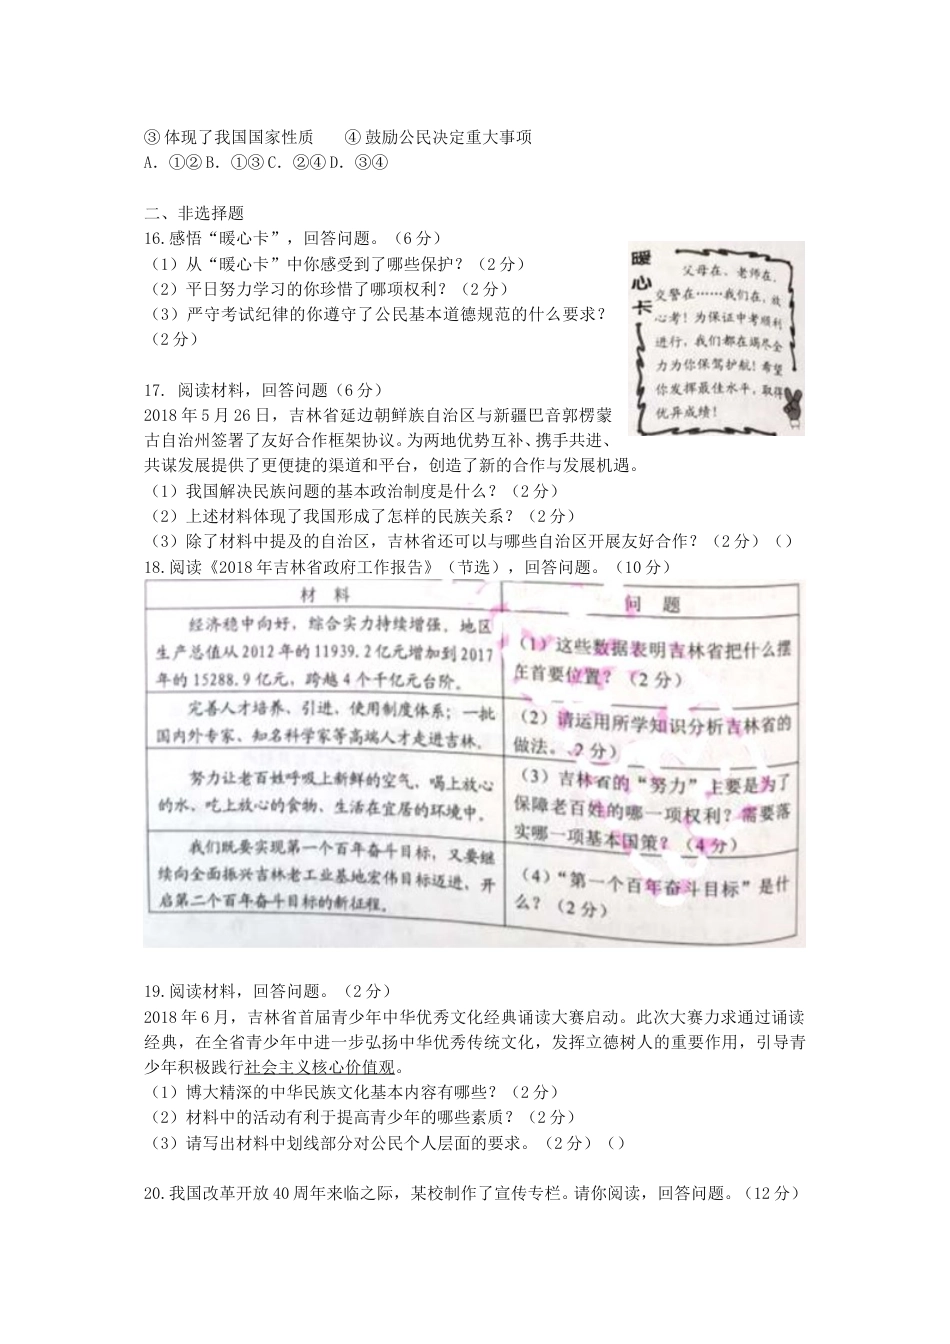 ③ 体现了我国国家性质 ④ 鼓励公民决定重大事项
A．①② B．①③ C．②④ D．③④
二、非选择题
16.感悟“暖心卡”，回答问题。（6 分）
（1）从“暖心卡”中你感受到了哪些保护？（2 分）
（2）平日努力学习的你珍惜了哪项权利？（2 分）
（3）严守考试纪律的你遵守了公民基本道德规范的什么要求？
（2 分）
暖心卡
父母在、老师在、
交警在……我们在，放
心考！为保证中考顺利
进行，我们都在竭尽全
力为你保驾护航！希望
你发挥最佳水平，取得
优异成绩！
17. 阅读材料，回答问题（6 分）
2018 年 5 月 26 日，吉林省延边朝鲜族自治区与新疆巴音郭楞蒙
古自治州签署了友好合作框架协议。为两地优势互补、携手共进、
共谋发展提供了更便捷的渠道和平台，创造了新的合作与发展机遇。
（1）我国解决民族问题的基本政治制度是什么？（2 分）
（2）上述材料体现了我国形成了怎样的民族关系？（2 分）
（3）除了材料中提及的自治区，吉林省还可以与哪些自治区开展友好合作？（2 分）（）
18.阅读《2018 年吉林省政府工作报告》（节选），回答问题。（10 分）
材 料
问 题
经济稳中向好，综合实力持续增强。地区
生产总值从 2012 年的 11939.2 亿元增加到 2017
年的 15288.9 亿元，跨越 4 个千亿元台阶。
（1）这些数据表明吉林省把什么摆
在首要位置？（2 分）
完善人才培养、引进、使用制度体系；一批
国内外专家、知名科学家等高端人才走进吉林。
（2）请运用所学知识分析吉林省的
做法。（2 分）
努力让老百姓呼吸上新鲜的空气、喝上放心
的水、吃上放心的食物、生活在宜居的环境中。
（3）吉林省的“努力”主要是为了
保障老百姓的哪一项权利？需要落
实哪一项基本国策？（4 分）
我们既要实现第一个百年奋斗目标，又要继
续向全面振兴吉林老工业基地宏伟目标迈进，开
启第二个百年奋斗目标的新征程。
（4）“第一个百年奋斗目标”是什
么？（2 分）
19.阅读材料，回答问题。（2 分）
2018 年 6 月，吉林省首届青少年中华优秀文化经典诵读大赛启动。此次大赛力求通过诵读
经典，在全省青少年中进一步弘扬中华优秀传统文化，发挥立德树人的重要作用，引导青
少年积极践行社会主义核心价值观。
（1）博大精深的中华民族文化基本内容有哪些？（2 分）
（2）材料中的活动有利于提高青少年的哪些素质？（2 分）
（3）请写出材料中划线部分对公民个人层面的要求。（2 分）（）
20.我国改革开放 40 周年来临之际，某校制作了宣传专栏。请你阅读，回答问题。（12 分）